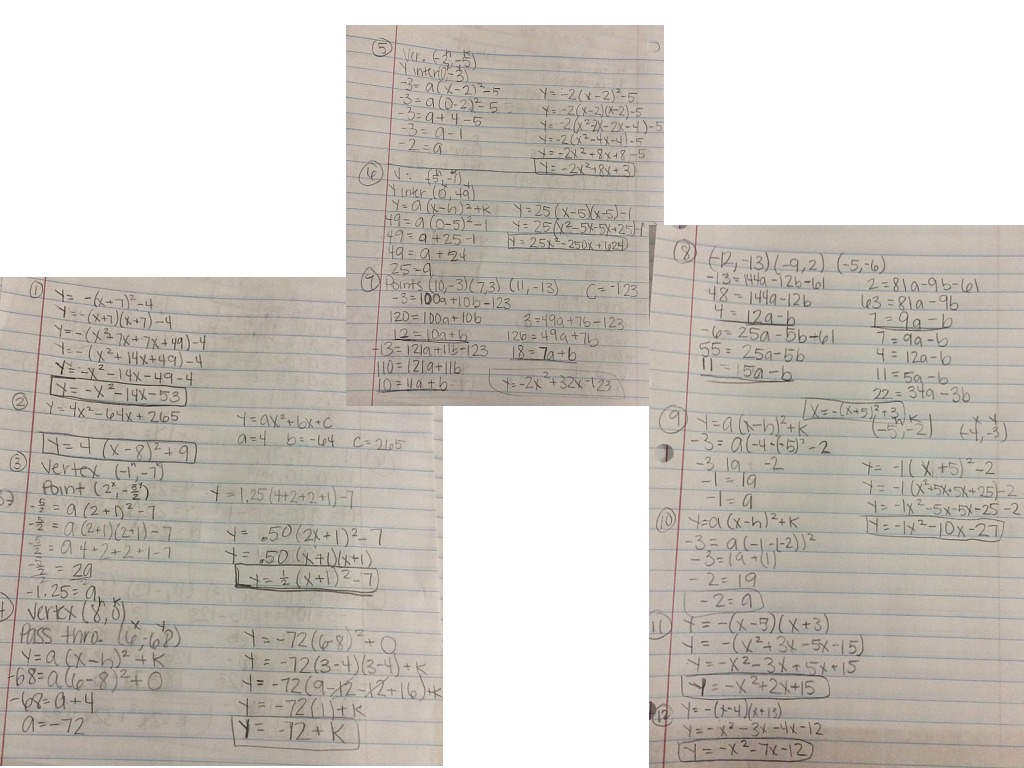 ① y = -(x+7)²-4
y = -(x+7)(x+7)-4
y = -(x²+7x+7x+49)-4
y = -(x²+14x+49)-4
y = -x²-14x-49-4
y = -x²-14x-53
② y = 4x²-64x+265
y = ax²+bx+c
a=4 b=-64 c=265
y = 4(x-8)²+9
③ Vertex (-1, -7)
Point (2, -5/2)
-5/2 = a(2+1)²-7
-5/2 = a(2+1)(2+1)-7
-5/2 = a 4+2+2+1-7
-5/2 = 2a
-1.25 = a
y = 1.25(4+2+2+1)-7
y = .50(2x+1)²-7
y = .50(x+1)(x+1)
y = 1/2(x+1)²-7
Vertex (8,0)
Pass thro. (6,-68)
y = a(x-h)²+k
-68 = a(6-8)²+0
-68 = a+4
a = -72
y = -72(6-8)²+0
y = -72(3-4)(3-4)+k
y = -72(9-12-12+16)+k
y = -72(1)+k
y = -72+k
⑤ Ver. (-2,-5)
y inter(0,-3)
-3 = a(x-2)²-5
-3 = a(0-2)²-5
-3 = a+4-5
-3 = a-1
-2 = a
y = -2(x-2)²-5
y = -2(x-2)(x-2)-5
y = -2(x²-2x-2x-4)-5
y = -2(x²-4x-4)-5
y = -2x²+8x+8-5
y = -2x²+8x+3
⑥ V: (5,-1)
y inter (0,49)
y = a(x-h)²+k
49 = a(0-5)²-1
49 = a+25-1
49 = a+24
25-a
y = 25(x-5)(x-5)-1
y = 25(x²-5x-5x+25)-1
y = 25x²-250x+624
⑦ Points (10,-3)(7,3)(11,-13) C=-123
-3=100a+10b-123
120=100a+10b
12=10a+b
-13=121a+11b-123
110=121a+11b
10=11a+b
3=49a+7b-123
126=49a+7b
18=7a+b
y=-2x²+32x-123
⑧ (-12,-13)(-9,2)(-5,-6)
-13=144a-12b-61
48=144a-12b
4=12a-b
-6=25a-5b+61
55=25a-5b
11=15a-b
2=81a-9b-61
63=81a-9b
7=9a-b
7=9a-b
4=12a-b
11=5a-b
22=34a-3b
x=-(x+5)²+3
⑨ y=a(x-h)²+k
(-5,-2) (-4,-3)
-3=a(-4+5)²-2
-3 1a -2
-1=1a
-1=a
y= -1(x+5)²-2
y= -1(x²+5x+5x+25)-2
y= -1x²-5x-5x-25-2
y= -1x²-10x-27
⑩ y=a(x-h)²+k
-3=a(-1-(-2))²
-3=1a+(1)
-2=1a
-2=a
⑪ y=-(x-5)(x+3)
y=-(x²+3x-5x-15)
y=-x²-3x+5x+15
y=-x²+2x+15
⑫ y=-(x-4)(x+3)
y=-x²-3x-4x-12
y=-x²-7x-12